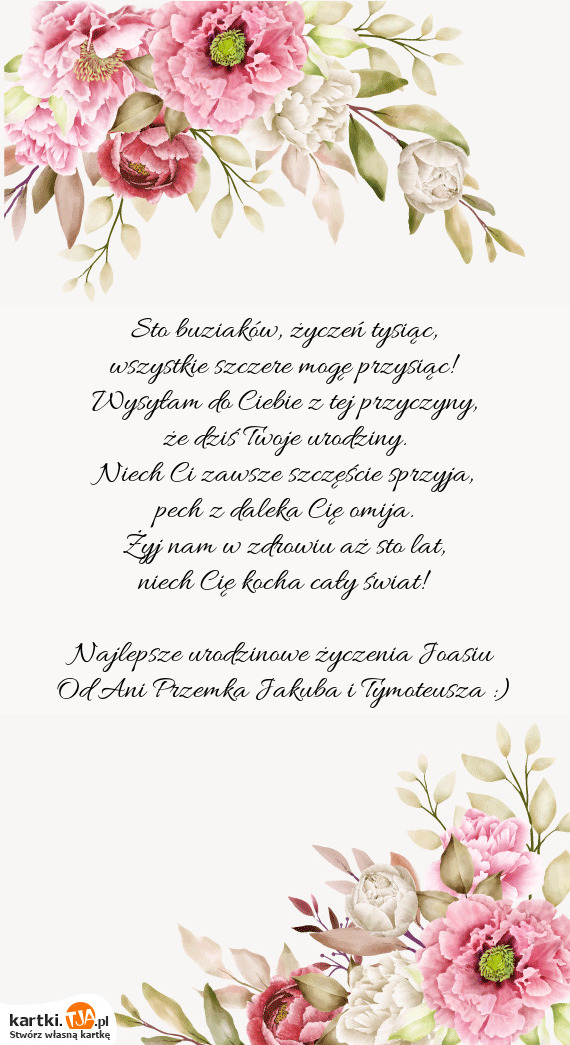 Sto buziaków, życzeń tysiąc,
wszystkie szczere mogę przysiąc!
Wysyłam do Ciebie z tej przyczyny,
że dziś Twoje urodziny.
Niech Ci zawsze szczęście sprzyja,
pech z daleka Cię omija.
Żyj nam w zdrowiu aż sto lat,
niech Cię kocha cały świat!
Najlepsze urodzinowe życzenia Joasiu
Od Ani Przemka Jakuba i Tymoteusza :)
kartki.TJA.pl
Stwórz własną kartkę